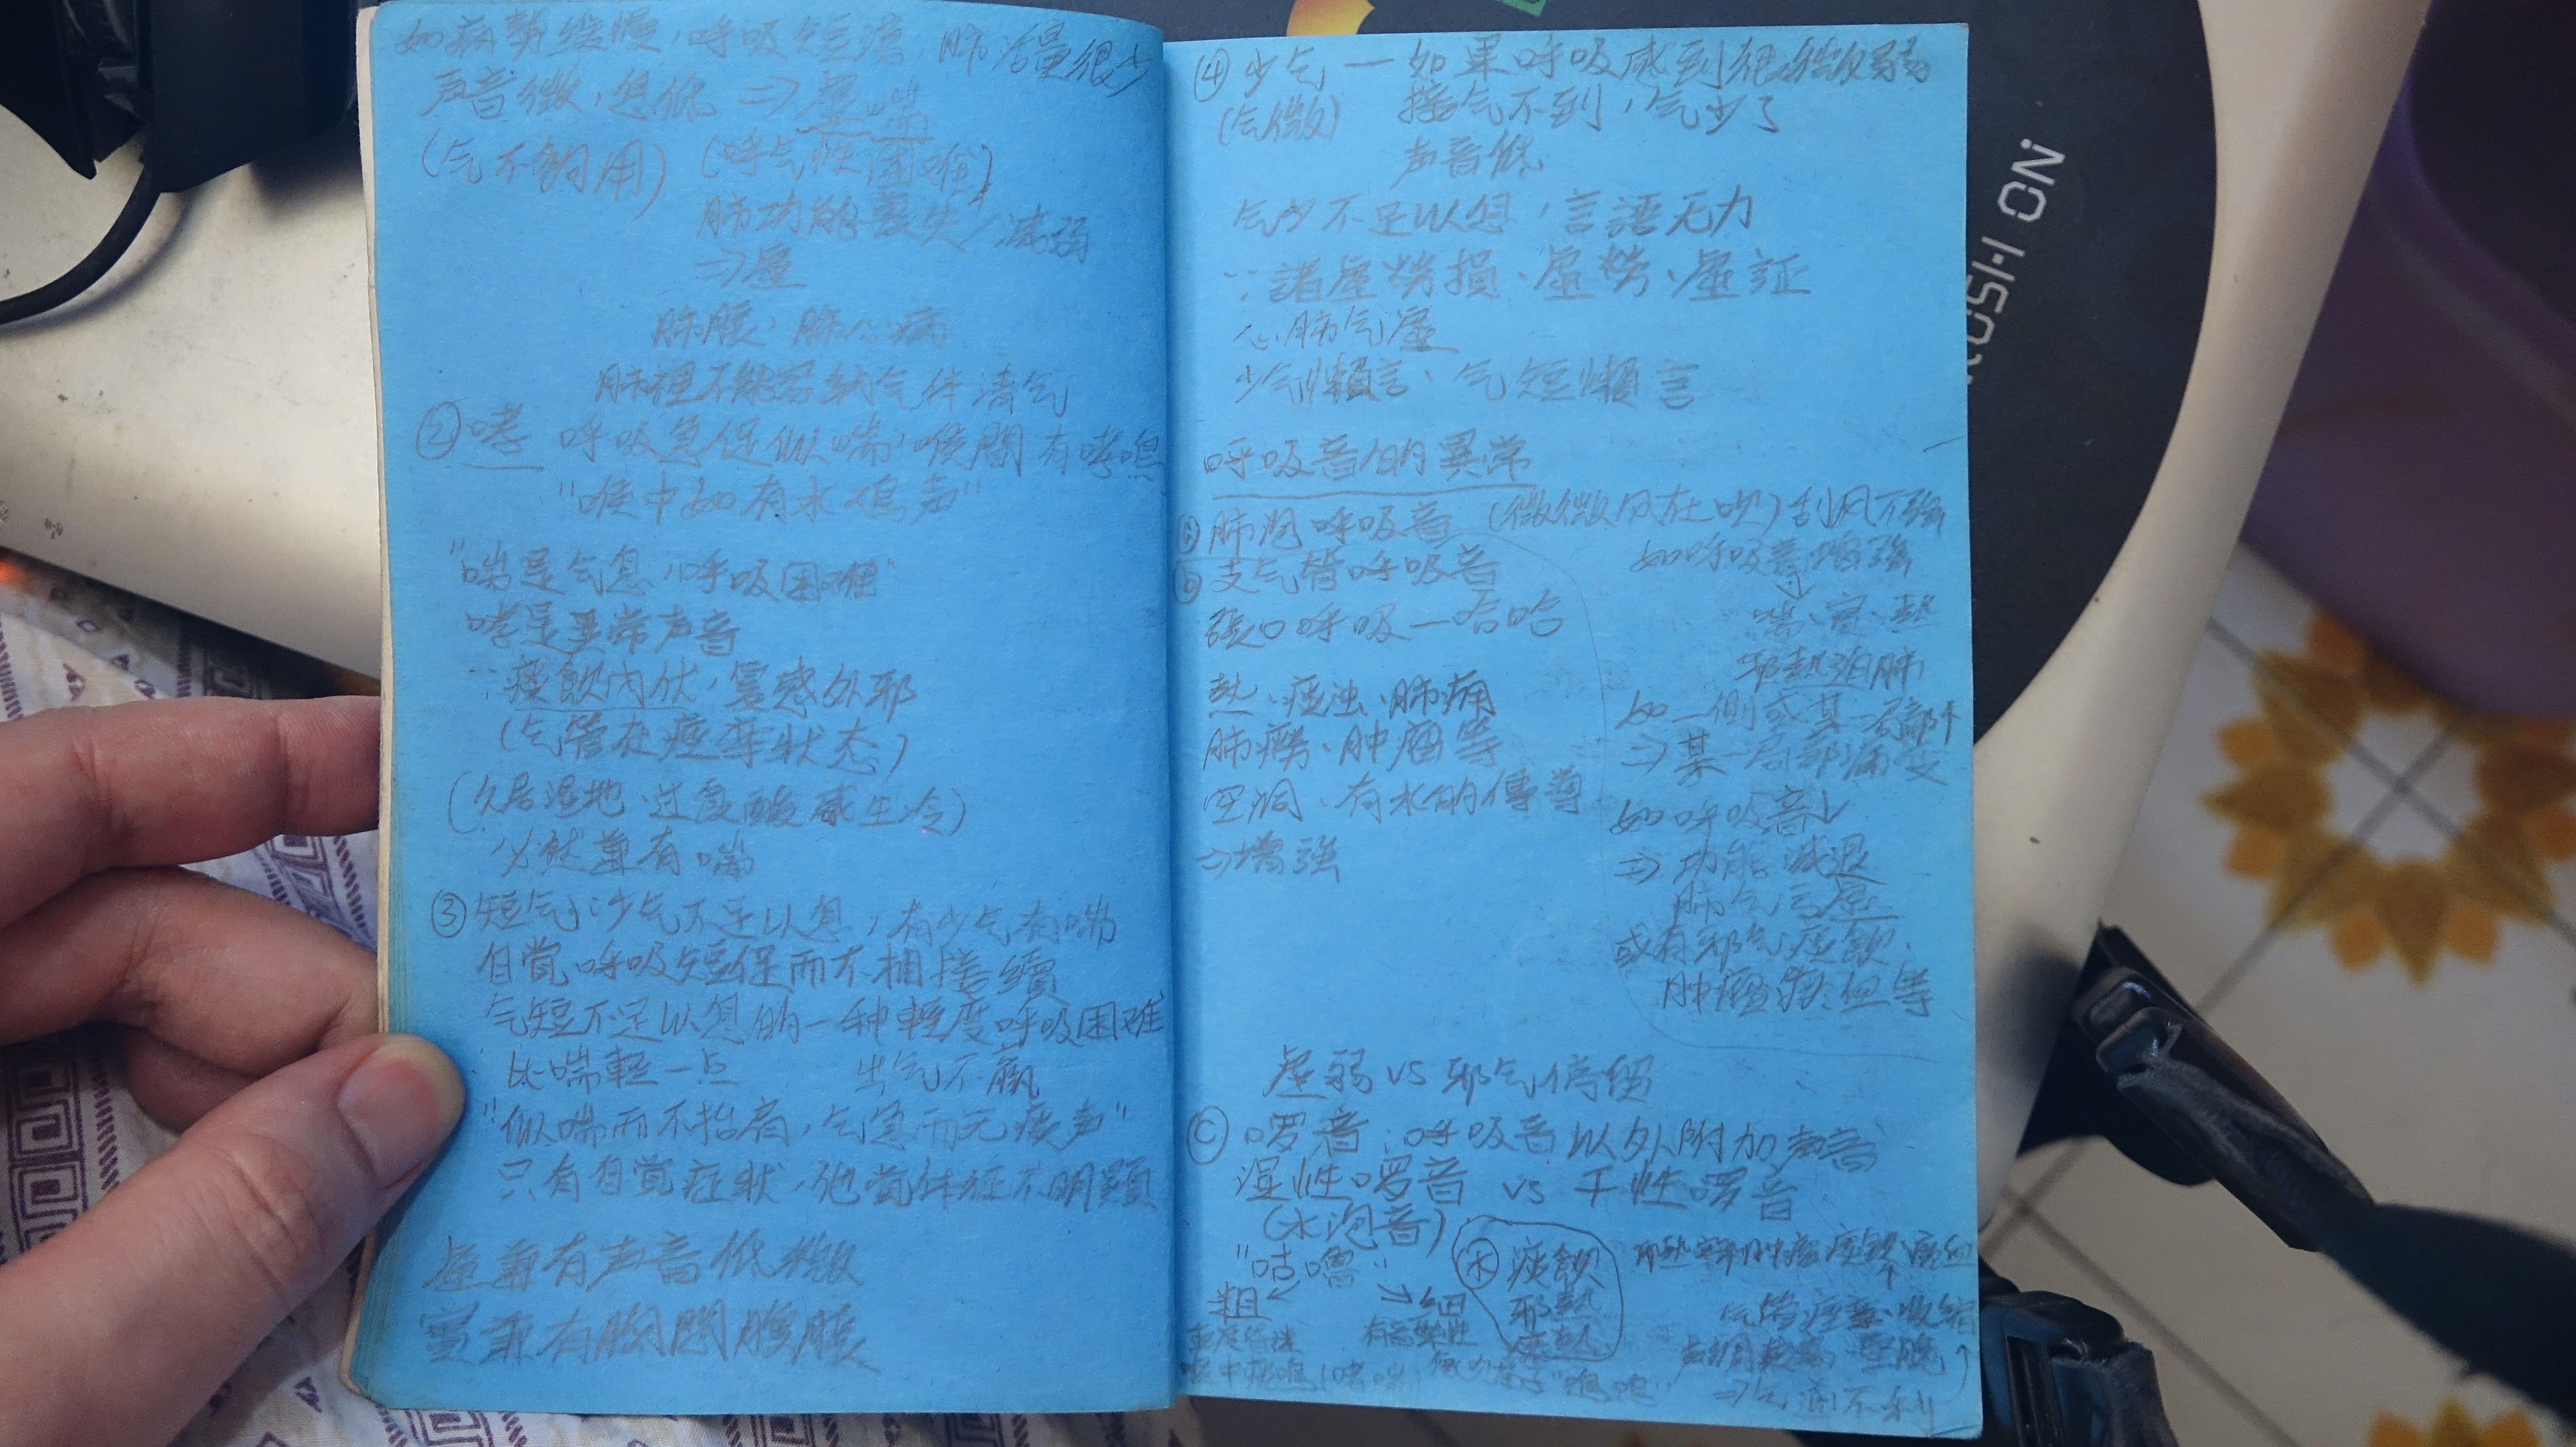 如病勢緩慢,呼吸短淺,肺活量很少
声音微,息低 ⇒ 虛喘
(气不夠用) (呼气性困难)
肺功能喪失/減弱
⇒虛
肺脹、肺心病
肺裡不能容納气体清气
② 哮 呼吸急促似喘,喉間有哮鳴
"喉中如有水鸡声"
"喘是气息,呼吸困难"
哮是異常声音
∵痰飲內伏,复感外邪
(气管在痙挛狀态)
(久居湿地、过食酸咸生冷)
必然兼有喘
③ 短气,少气不足以息,有少气有喘
自覚呼吸短促而不相接續
气短不足以息的一种輕度呼吸困难
比喘輕一点 出气不贏
"似喘而不抬肩,气急而无痰声"
只有自覚症状,他覚体症不明顯
虛兼有声音低微
實兼有胸悶腹脹
④ 少气 — 如果呼吸感到很微弱
(气微) 接气不到,气少了
声音低
气少不足以息,言語无力
∵諸虛劳損、虛劳、虛証
心肺气虛
少气懶言、气短懶言
呼吸音的異常
ⓐ 肺泡呼吸音 (微微风在吹) 刮风不強
如呼吸音增強
↓
喘、實、热
邪热迫肺
如一側或某一局部↑
⇒某一局部病变
如呼吸音↓
⇒功能減退
肺气虛
或有邪气痰飲、
肿瘤瘀血等
ⓑ 支气管呼吸音
張口呼吸—哈哈
热、痰浊、肺痈
肺癆、肿瘤等
空洞、有水的傳導
⇒增強
虛弱 vs 邪气停留
ⓒ 啰音:呼吸音以外附加声音
湿性啰音 vs 干性啰音
(水泡音)
"咕嚕"
粗 細
水 痰飲
邪热
气管痙挛、收縮
⇒气道不利
ON